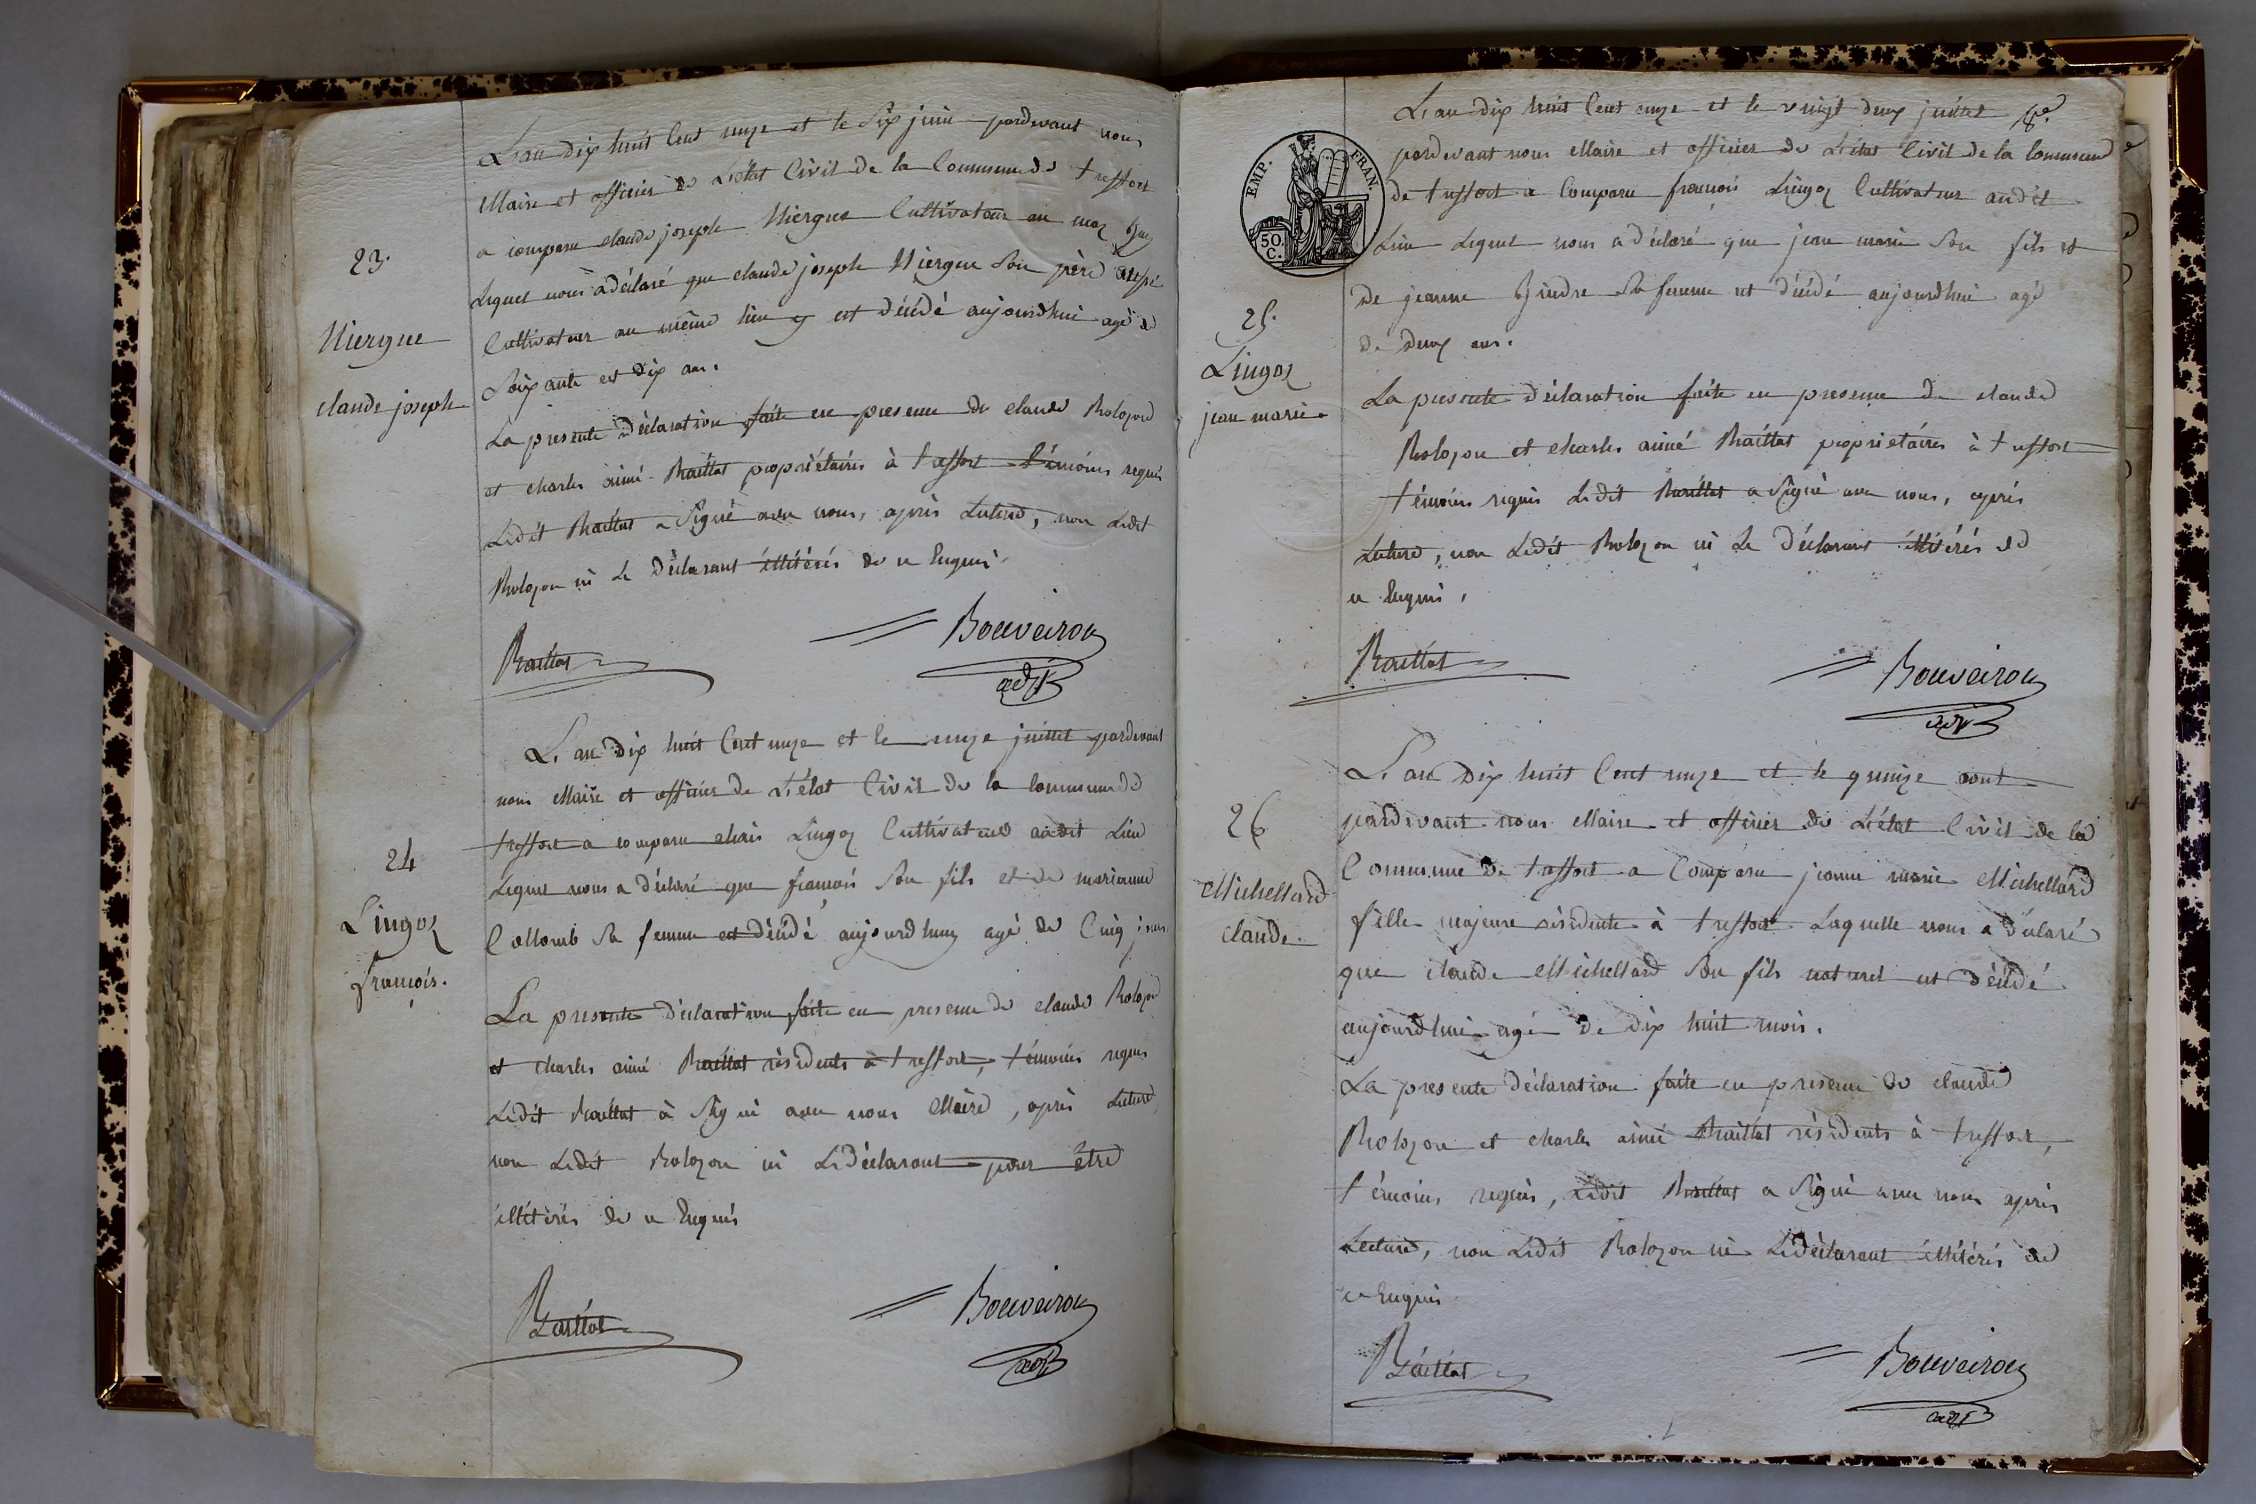 L'an dix huit Cent onze et le Six juin pardevant nous
Maire et officier de L'état Civil de la Commune de treffort
a comparu claude joseph Niergue Cultivateur au
23.
Lequel nous a déclaré que claude joseph Niergue Son père aussi
Cultivateur au même lieu y est décédé aujourdhui agé de
Niergue
claude joseph
Soixante et dix ans.
La presente déclaration faite en presence de claude Rolozon
et charles aimé Raillat propriétaires à treffort témoins requis
Ledit Raillat a Signé avec nous, après Lecture, non Ledit
Rolozon ni Le déclarant illitérés de ce Enquis.
Raillat
Bouveiron
adjt
L'an dix huit Cent onze et le onze juillet pardevant
nous Maire et officier de L'état Civil de la Commune de
treffort a comparu Lingoz Cultivateur audit Lieu
24
Lequel nous a déclaré que françois Son fils et de marianne
Lingoz
françois.
Collomb Sa femme est décédé aujourdhuy agé de Cinq jours
La presente déclaration faite en presence de claude Rolozon
et charles aimé Raillat résidents à treffort, témoins requis
Ledit Raillat à Signé avec nous Maire, après Lecture,
non Ledit Rolozon ni Le déclarant pour être
illitérés de ce Enquis
Raillat
Bouveiron
adjt
L'an dix huit Cent onze et le vingt deux juillet
EMP. FRAN.
50.
C.
pardevant nous Maire et officier de L'état Civil de la Commune
de treffort a Comparu françois Lingoz Cultivateur audit
Lieu Lequel nous a déclaré que jean marie Son fils et
de jeanne Sa femme est décédé aujourdhui agé
25.
Lingoz
jean marie
de deux ans.
La presente déclaration faite en presence de claude
Rolozon et charles aimé Raillat propriétaires à treffort
témoins requis Ledit Raillat a Signé avec nous, après
Lecture, non Ledit Rolozon ni Le déclarant illitérés de
ce Enquis.
Raillat
Bouveiron
adjt
L'an dix huit Cent onze et le quinze aout
26
pardevant nous Maire et officier de L'état Civil de la
Commune de treffort a Comparu jeanne marie Michellard
Michellard
claude.
fille majeure résidente à treffort Laquelle nous a déclaré
que claude Michellard Son fils naturel est décédé
aujourdhui agé de dix huit mois.
La presente déclaration faite en presence de claude
Rolozon et charles aimé Raillat résidents à treffort,
témoins requis, Ledit Raillat a Signé avec nous après
Lecture, non Ledit Rolozon ni Le déclarant illitérés de
ce Enquis
Raillat
Bouveiron
adjt